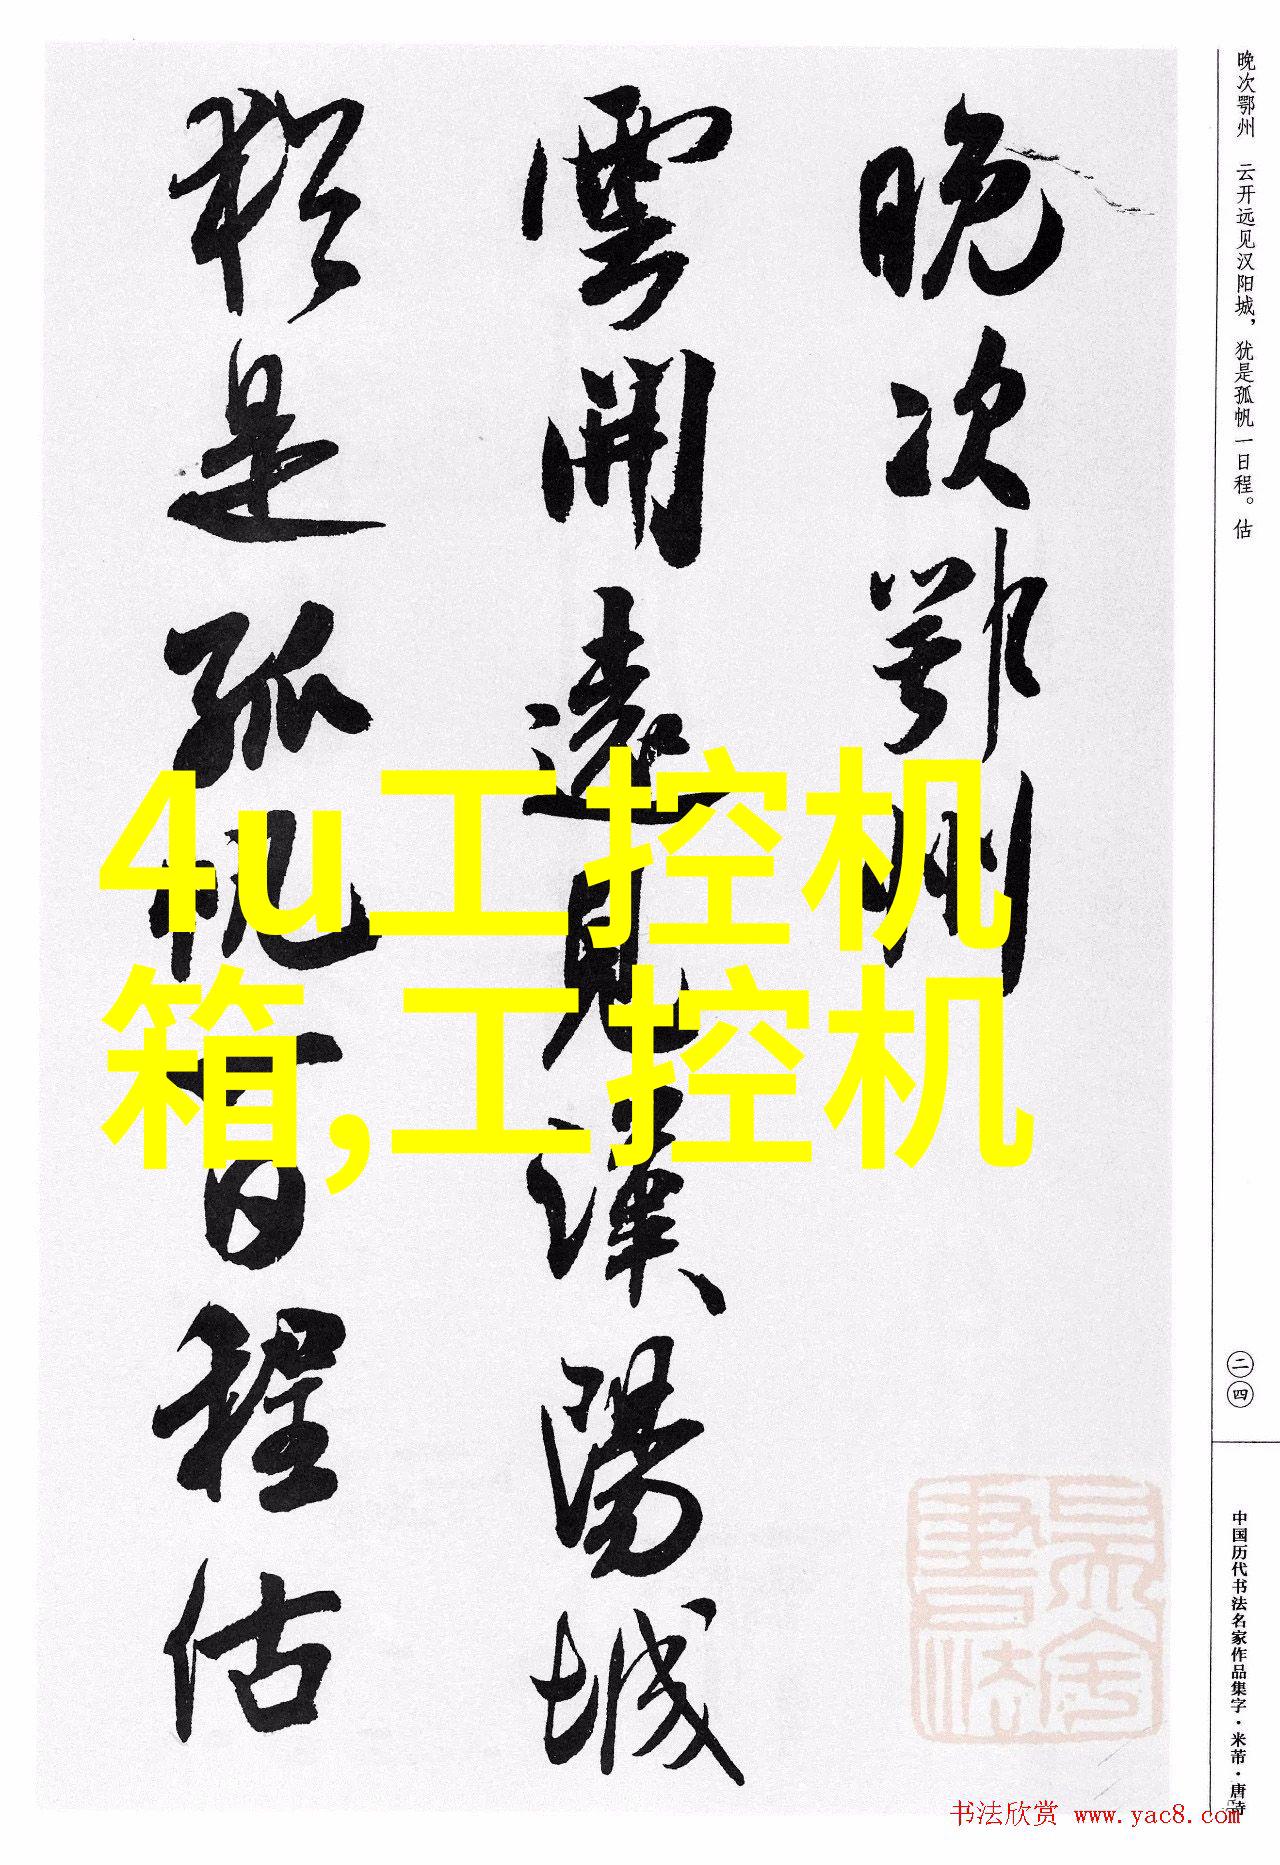 晚次鄂州 云开远见汉阳城，犹是孤帆一日程。估
晚次鄂州
雲開遠見漢陽城
猶是孤帆一日程估
4u工控机
箱,工控机
二四
中国历代书法名家作品集字·米芾·唐诗
书法欣赏 www.yac8.com